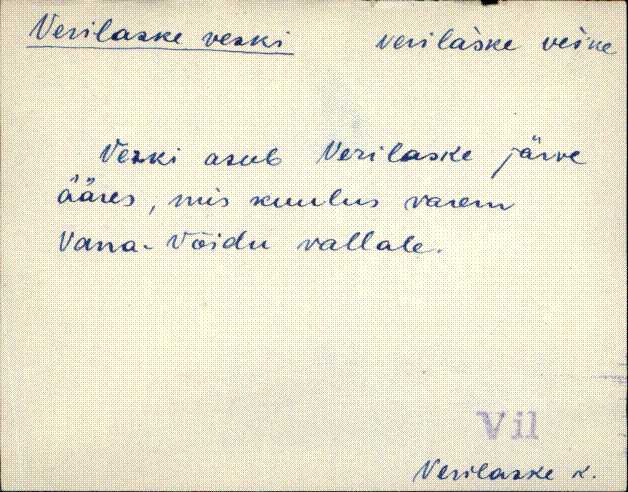 Verilaske veski verilàske veske
Veski asub Verilaske järve
ääres, mis kuulus varem
Vana-Võidu vallale.
Vil
Verilaske k.